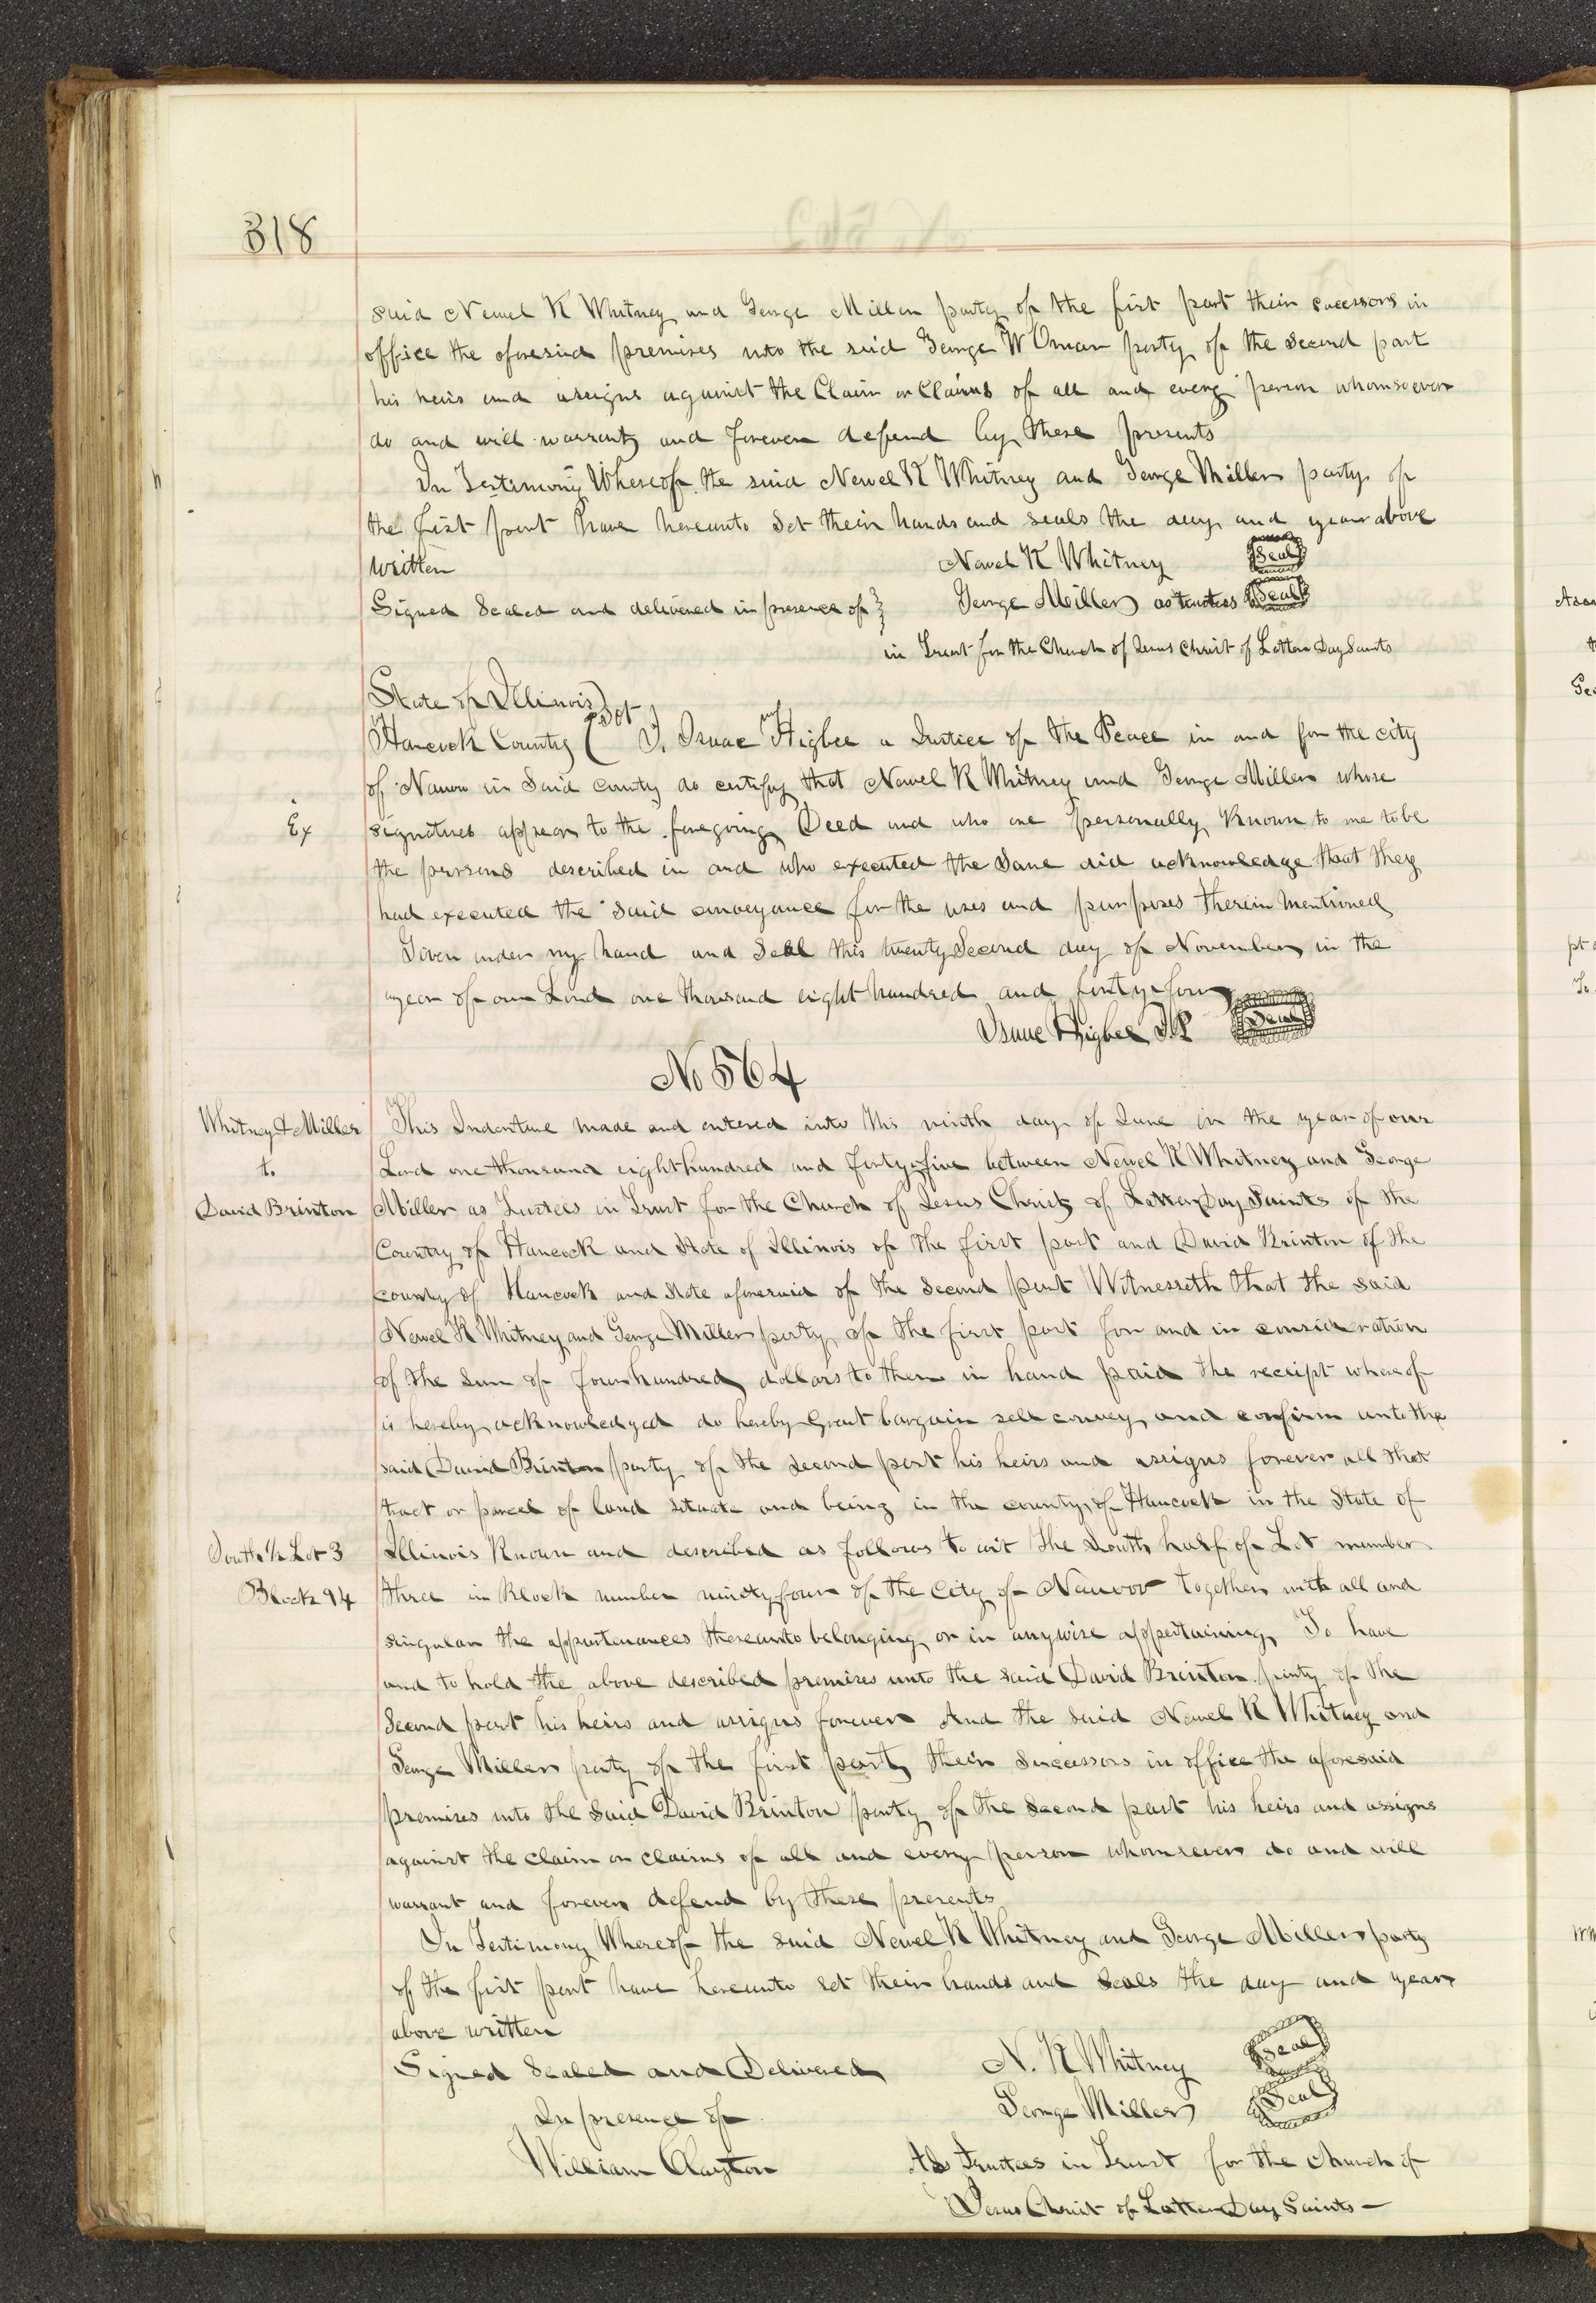 318
said Newel K Whitney and George Miller party of the first part their sucessors in
office the aforesaid premises unto the said George W Oman party of the second part
his heirs and assigns against the Claim or Claims of all and every person whomsoever
do and will warrant and forever defend by these presents
In Testimony Whereof the said Newel K Whitney and George Miller party of
the first part have hereunto set their hands and seals the day and year above
written Newel K Whitney Seal
Signed Sealed and delivered in presence of } George Miller as trustees Seal
in Trust for the Church of Jesus Christ of Latter Day Saints
State of Illinois )
Hancock County ( Sct I, Isaac Higbee a Justice of the Peace in and for the city
of Nauvoo in Said County do certify that Newel K Whitney and George Miller whose
Ex signatures appear to the foregoing Deed and who are personally Known to me to be
the persons described in and who executed the Same did acknowledge that they
had executed the said conveyance for the uses and purposes therein mentioned
Given under my hand and Seal this twenty Second day of November in the
year of our Lord one thousand eight hundred and forty four
Isaac Higbee J.P. Seal
No 564
Whitney & Miller This Indenture made and entered into this ninth day of June in the year of our
t. Lord one thousand eight hundred and forty five between Newel K Whitney and George
David Brinton Miller as Trustees in Trust for the Church of Jesus Christ of Latter Day Saints of the
County of Hancock and State of Illinois of the first part and David Brinton of the
county of Hancock and State aforesaid of the Second part Witnesseth that the said
Newel K Whitney and George Miller party of the first part for and in consideration
of the sum of four hundred dollars to them in hand paid the receipt whereof
is hereby acknowledged do hereby Grant bargain sell convey and confirm unto the
said David Brinton party of the second part his heirs and assigns forever all that
tract or parcel of land situate and being in the county of Hancock in the State of
South 1/2 Lot 3 Illinois Known and described as follows to wit The South half of Lot number
Block 94 three in Block number ninety four of the City of Nauvoo together with all and
singular the appurtenances thereunto belonging or in anywise appertaining To have
and to hold the above described premises unto the said David Brinton party of the
Second part his heirs and assigns forever And the said Newel K Whitney and
George Miller party of the first part their Sucessors in office the aforesaid
premises unto the Said David Brinton party of the Second part his heirs and assigns
against the claim or claims of all and every person whomsever do and will
warrant and forever defend by these presents
In Testimony Whereof the said Newel K Whitney and George Miller party
of the first part have hereunto set their hands and seals the day and year
above written
Signed Sealed and Delivered N. K Whitney Seal
In presence of George Miller Seal
William Clayton As Trustees in Trust for the Church of
Jesus Christ of Latter Day Saints —